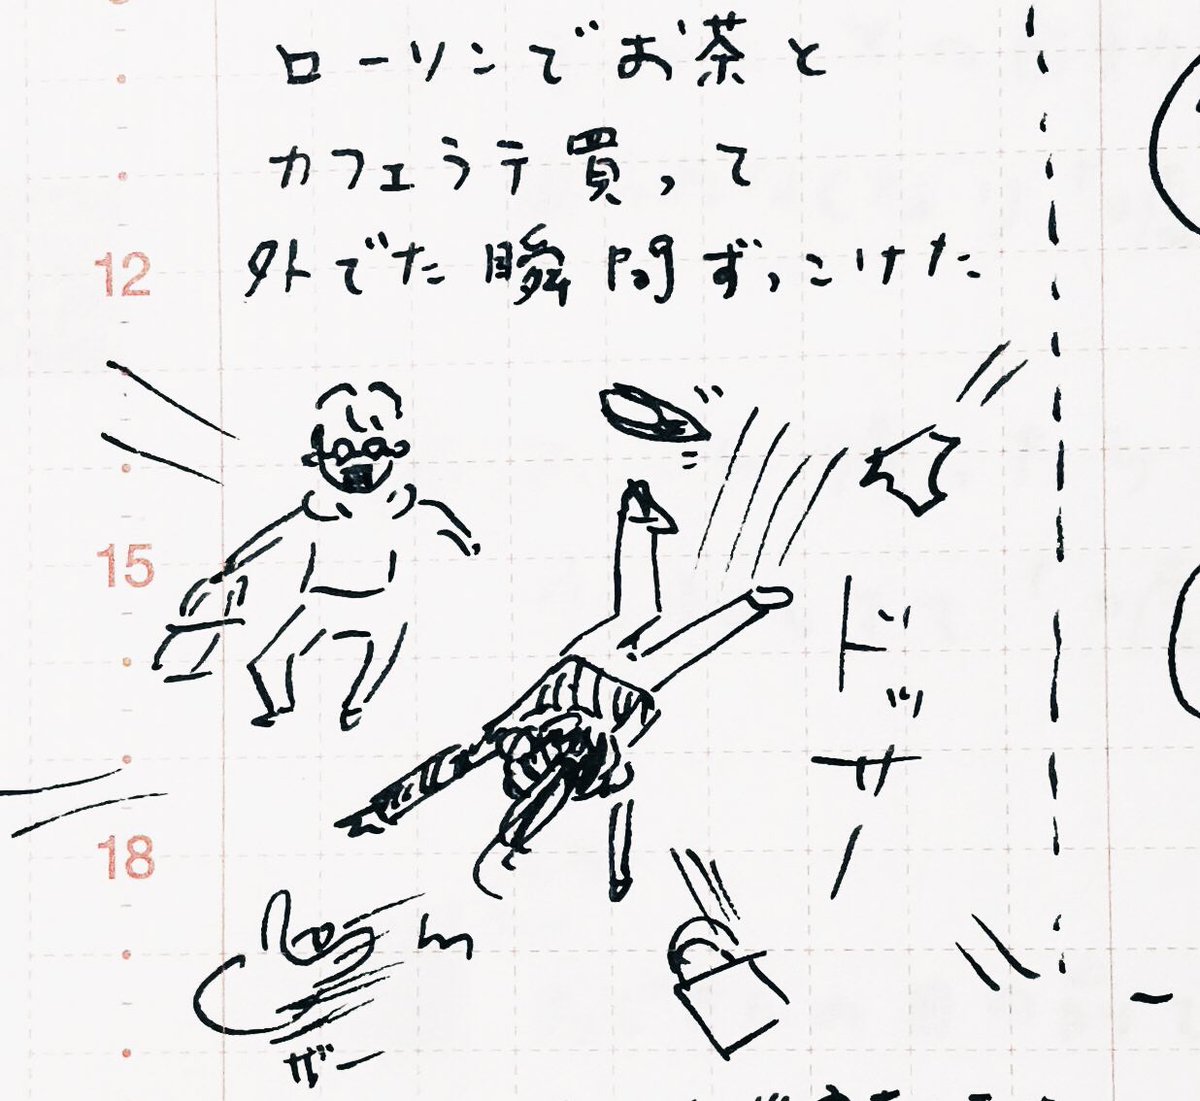 ローソンでお茶と
カフェラテ買って
外でた瞬間ずっこけた
12
15
18
ドッサ
ザー